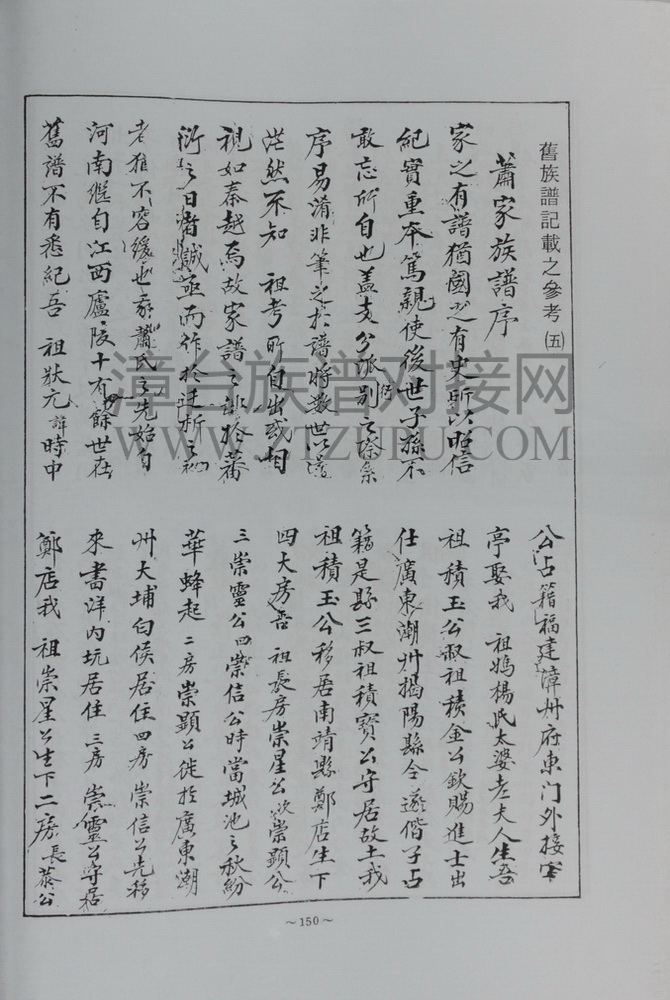 舊族譜記載之參考(五)
蕭家族譜序
家之有譜猶國之有史所以昭信
紀實重本篤親使後世子孫不
敢忘所自也蓋支分派別衍之際系
序易淆非筆之於譜將數世以還
茫然不知 祖考所自出或相
視如秦越焉故家譜之
衍之日者誠亟而作於
老雅不容緩也我蕭氏之先始自
河南繼自江西廬陵十有餘世在
舊譜不有悉紀吾 祖狀元諱時中
公占籍福建漳州府東门外接官
亭娶我 祖媽楊氏太婆老夫人生吾
祖積玉公叔祖積金公欽賜進士出
仕廣東潮州揭陽縣令遂偕子占
籍是縣三叔祖積寶公守居故土我
祖積玉公移居南靖縣鄭店生下
四大房吾 祖長房崇星公次崇顯公
三崇靈公四崇信公時當城池之秋紛
華蜂起二房崇顯公徙於廣東潮
州大埔白侯居住四房 崇信公先移
來書洋内坑居住 三房 崇靈公守居
鄭店我 祖崇星公生下二房長恭公
～150～
漳台族谱对接网
WWW.ZTZUPU.COM